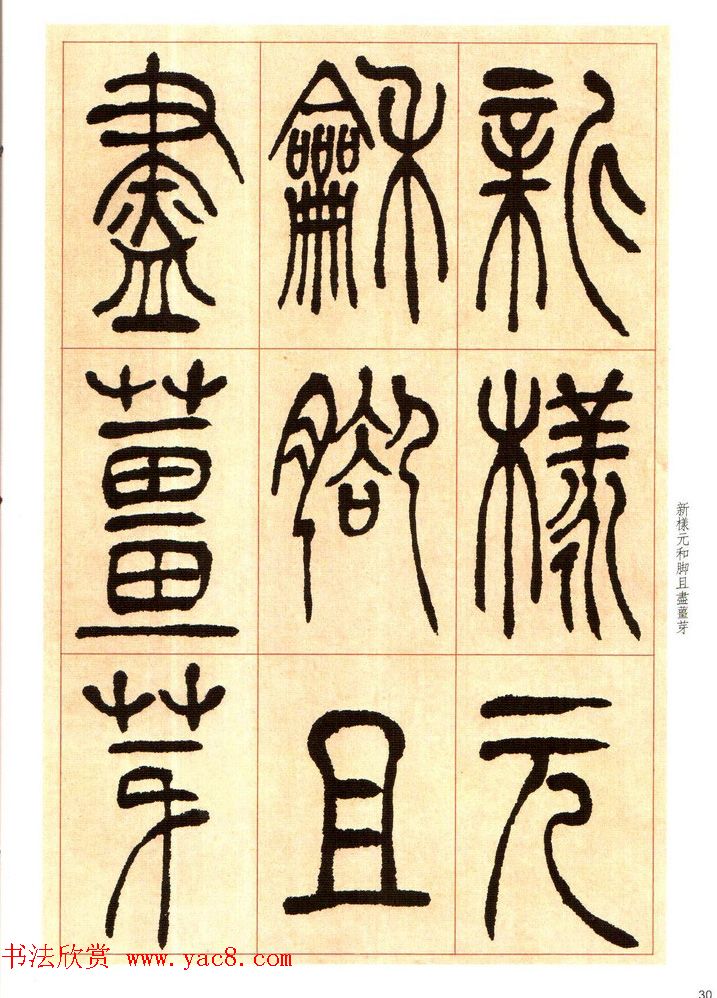 新樣元
龢腳且
盡薑芽
新樣元和脚且盡薑芽
书法欣赏 www.yac8.com
30